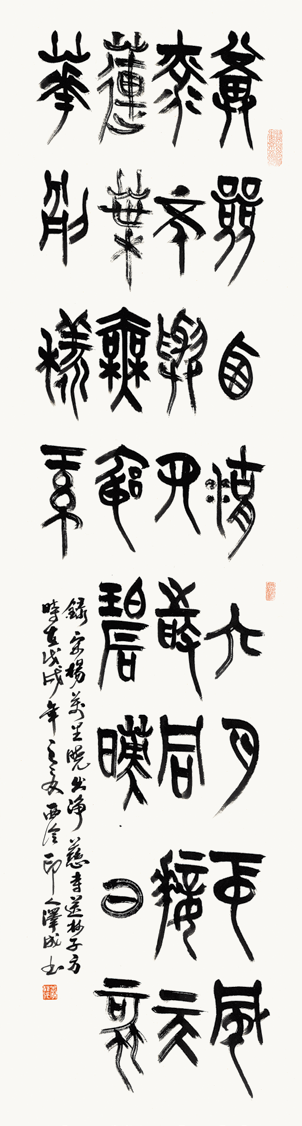 畢竟西湖六月中風
光不與四時同接天
蓮葉無窮碧暎日荷
華別樣紅
錄宋楊萬里曉出淨慈寺送林子方
時在戊戌年之夏西泠印人澤成書